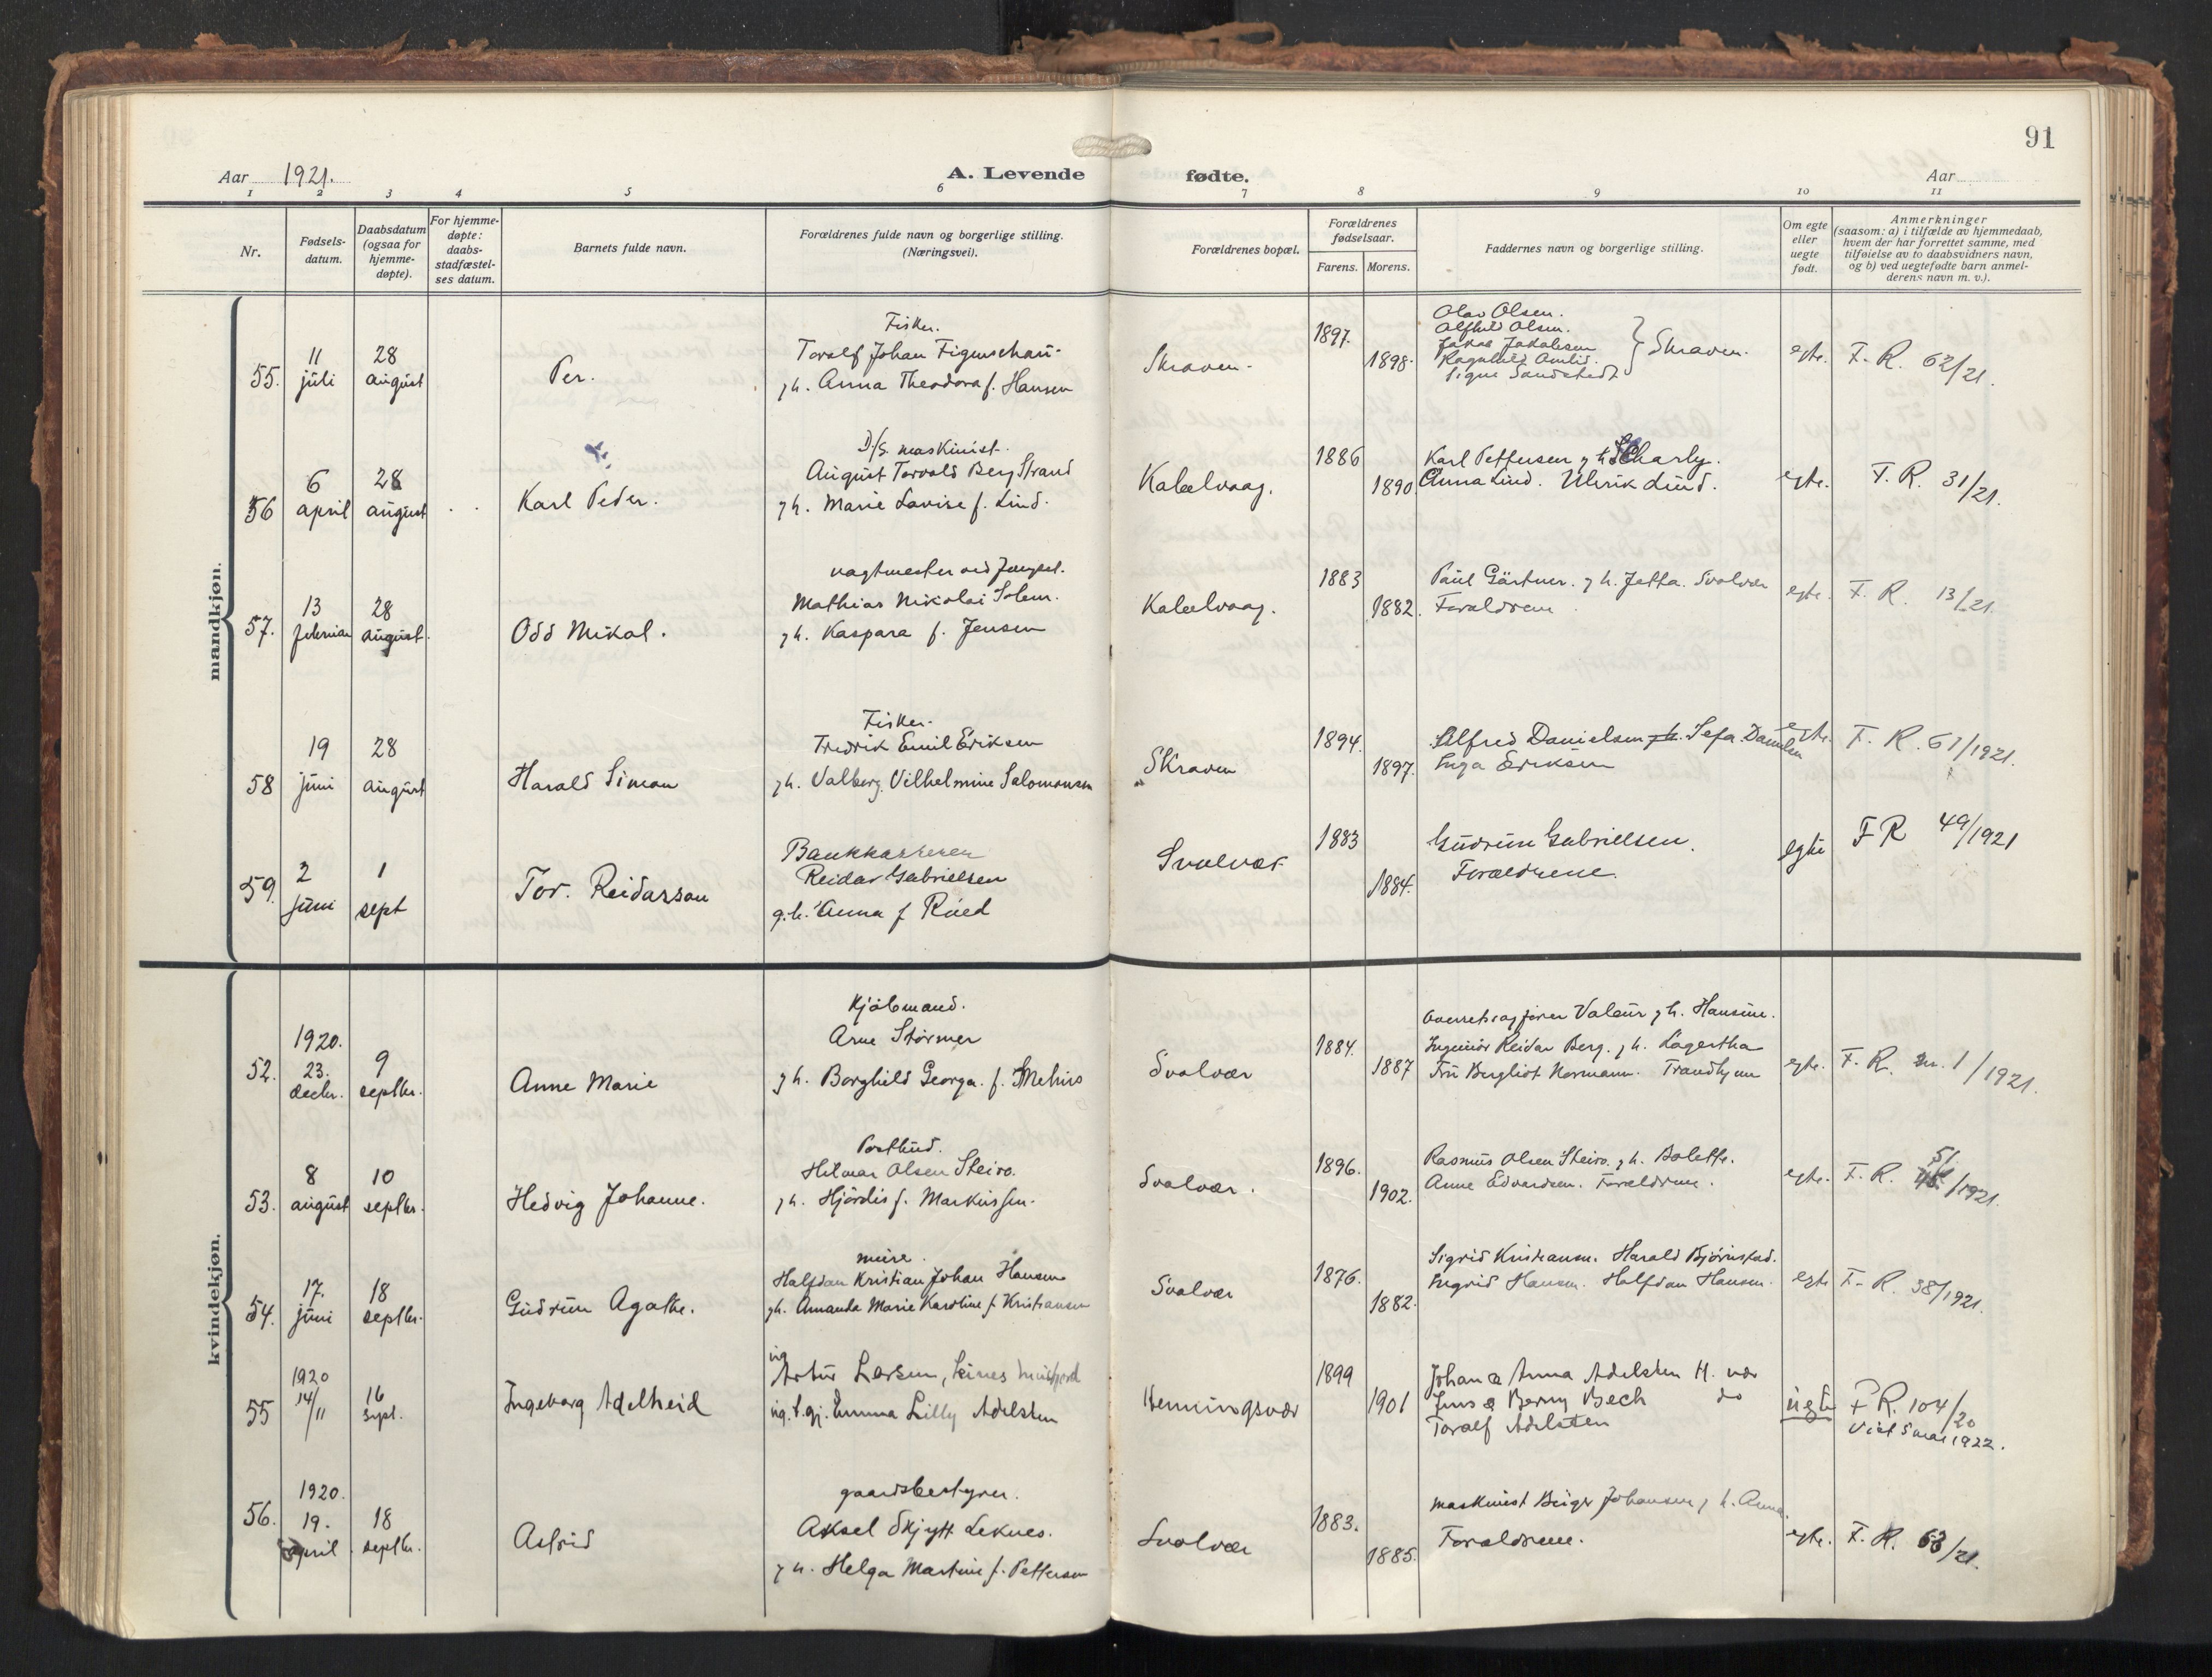 91
Aar 1921.
A. Levende fødte.
Aar
1 2 3 4 5 6 7 8 9 10 11
Nr.
Fødsels-
datum.
Daabsdatum
(ogsaa for
hjemme-
døpte).
For hjemme-
døpte:
daabs-
stadfæstel-
ses datum.
Barnets fulde navn.
Forældrenes fulde navn og borgerlige stilling.
(Næringsvei).
Forældrenes bopæl.
Forældrenes
fødselsaar.
Farens. Morens.
Faddernes navn og borgerlige stilling.
Om egte
eller
uegte
født.
Anmerkninger
(saasom: a) i tilfælde av hjemmedaab,
hvem der har forrettet samme, med
tilføielse av to daabsvidners navn,
og b) ved uegtefødte barn anmel-
derens navn m. v.).
mandkjøn.
55. 11 juli
28 august
Per.
Fisker.
Toralf Johan Figenschau
g h. Anna Theodora f. Hansen
Skraven.
1897. 1898.
Olav Olsen.
Alfhild Olsen.
Jakob Jakobsen
Ragnhild
Signe Sandstedt
Skraven.
egte. F. R. 62/21.
56 6 april
28 august
Karl Peder.
D/S. maskinist.
August Torvald Berg Strand
g h. Marie Lovise f. Lind.
Kabelvaag.
1886 1890
Karl Pettersen g h Charly.
Anna Lind. Ulrik Lind.
egte. F. R. 31/21.
57. 13 februar
28 august.
Odd Mikal.
vagtmester ved fengsel.
Mathias Nikolai Solem.
g h. Kaspara f. Jensen
Kabelvaag.
1883 1882.
Paul Gärtner. g h. Jetta. Svolvær
Forældrene
egte. F. R. 13/21.
58 19 juni
28 august
Harald Simon
Fisker.
Fredrik Emil Eriksen
g h. Valborg Vilhelmine Salomonsen
Skraven
1894. 1897.
Alfred Danielsen g h. Sefa Danielsen
Inga Eriksen
egte. F. R. 61/1921.
59. 2 juni
1 sept
Tor. Reidarson
Bankkasserer
Reidar Gabrielsen
g. h. Anna f Rued
Svolvær
1883 1884.
Gudrun Gabrielsen.
Forældrene.
egte F R 49/1921
kvindekjøn.
52. 1920. 23. decbr.
9 septbr.
Anne Marie
Kjøbmand.
Arne Størmer
g h. Borghild Georga. f. Mehus
Svolvær
1884. 1887
Overretssagfører Valeur g h. Hansine.
Ingeniør Reidar Berg. g h. Lagertha
Fru Bergliot Normann. Trondhjem
egte. F. R. nr. 1/1921.
53. 8 august
10 septbr.
Hedvig Johanne.
Postbud.
Hilmar Olsen Steiro.
g h. Hjørdis f. Markussen.
Svolvær.
1896. 1902.
Rasmus Olsen Steiro. g h. Bolette.
Anne Edvardsen. Forældrene.
egte. F. R. 51/1921.
54. 17. juni
18 septbr.
Gudrun Agathe.
murer.
Halfdan Kristian Johan Hansen
gh. Amanda Marie Karoline f. Kristiansen
Svolvær
1876. 1882.
Sigrid Kristiansen. Harald Bjørnstad.
Ingrid Hansen. Halfdan Hansen.
egte F. R. 38/1921.
55 1920 14/11
16 sept.
Ingeborg Adelheid
ug
Artur Larsen, Leines
ug. t. gj. Emma Lilly Adelsten
Henningsvær
1899 1901
Johan & Anna Adelsten H. vær
Jens & Berny Bech do
Toralf Adelsten
uegte F R. 104/20
Viet 5 mai 1922.
56. 1920. 19. april
18 septbr.
Astrid
gaardsbestyrer.
Aksel Skjytt Leknes.
g h. Helga Martine f. Pettersen
Svolvær
1883. 1885.
maskinist Birger Johansen g h. Anna.
Forældrene.
egte. F. R. 63/21.